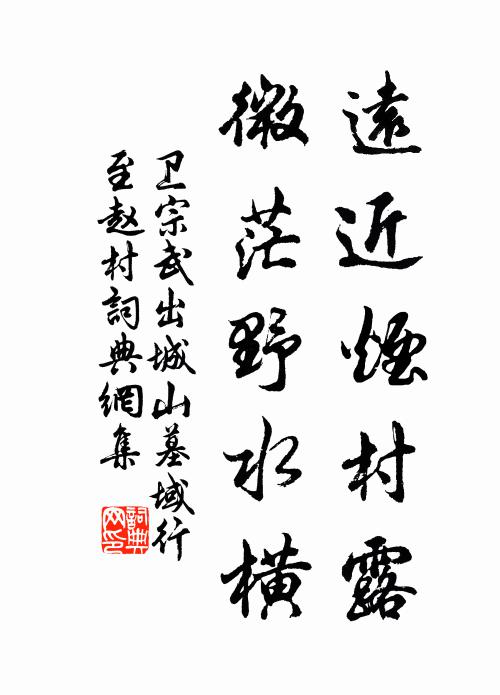 遠近煙村露
微茫野水橫
卫宗武出城山墓域行
至赵村詞典網集
詞典
网印